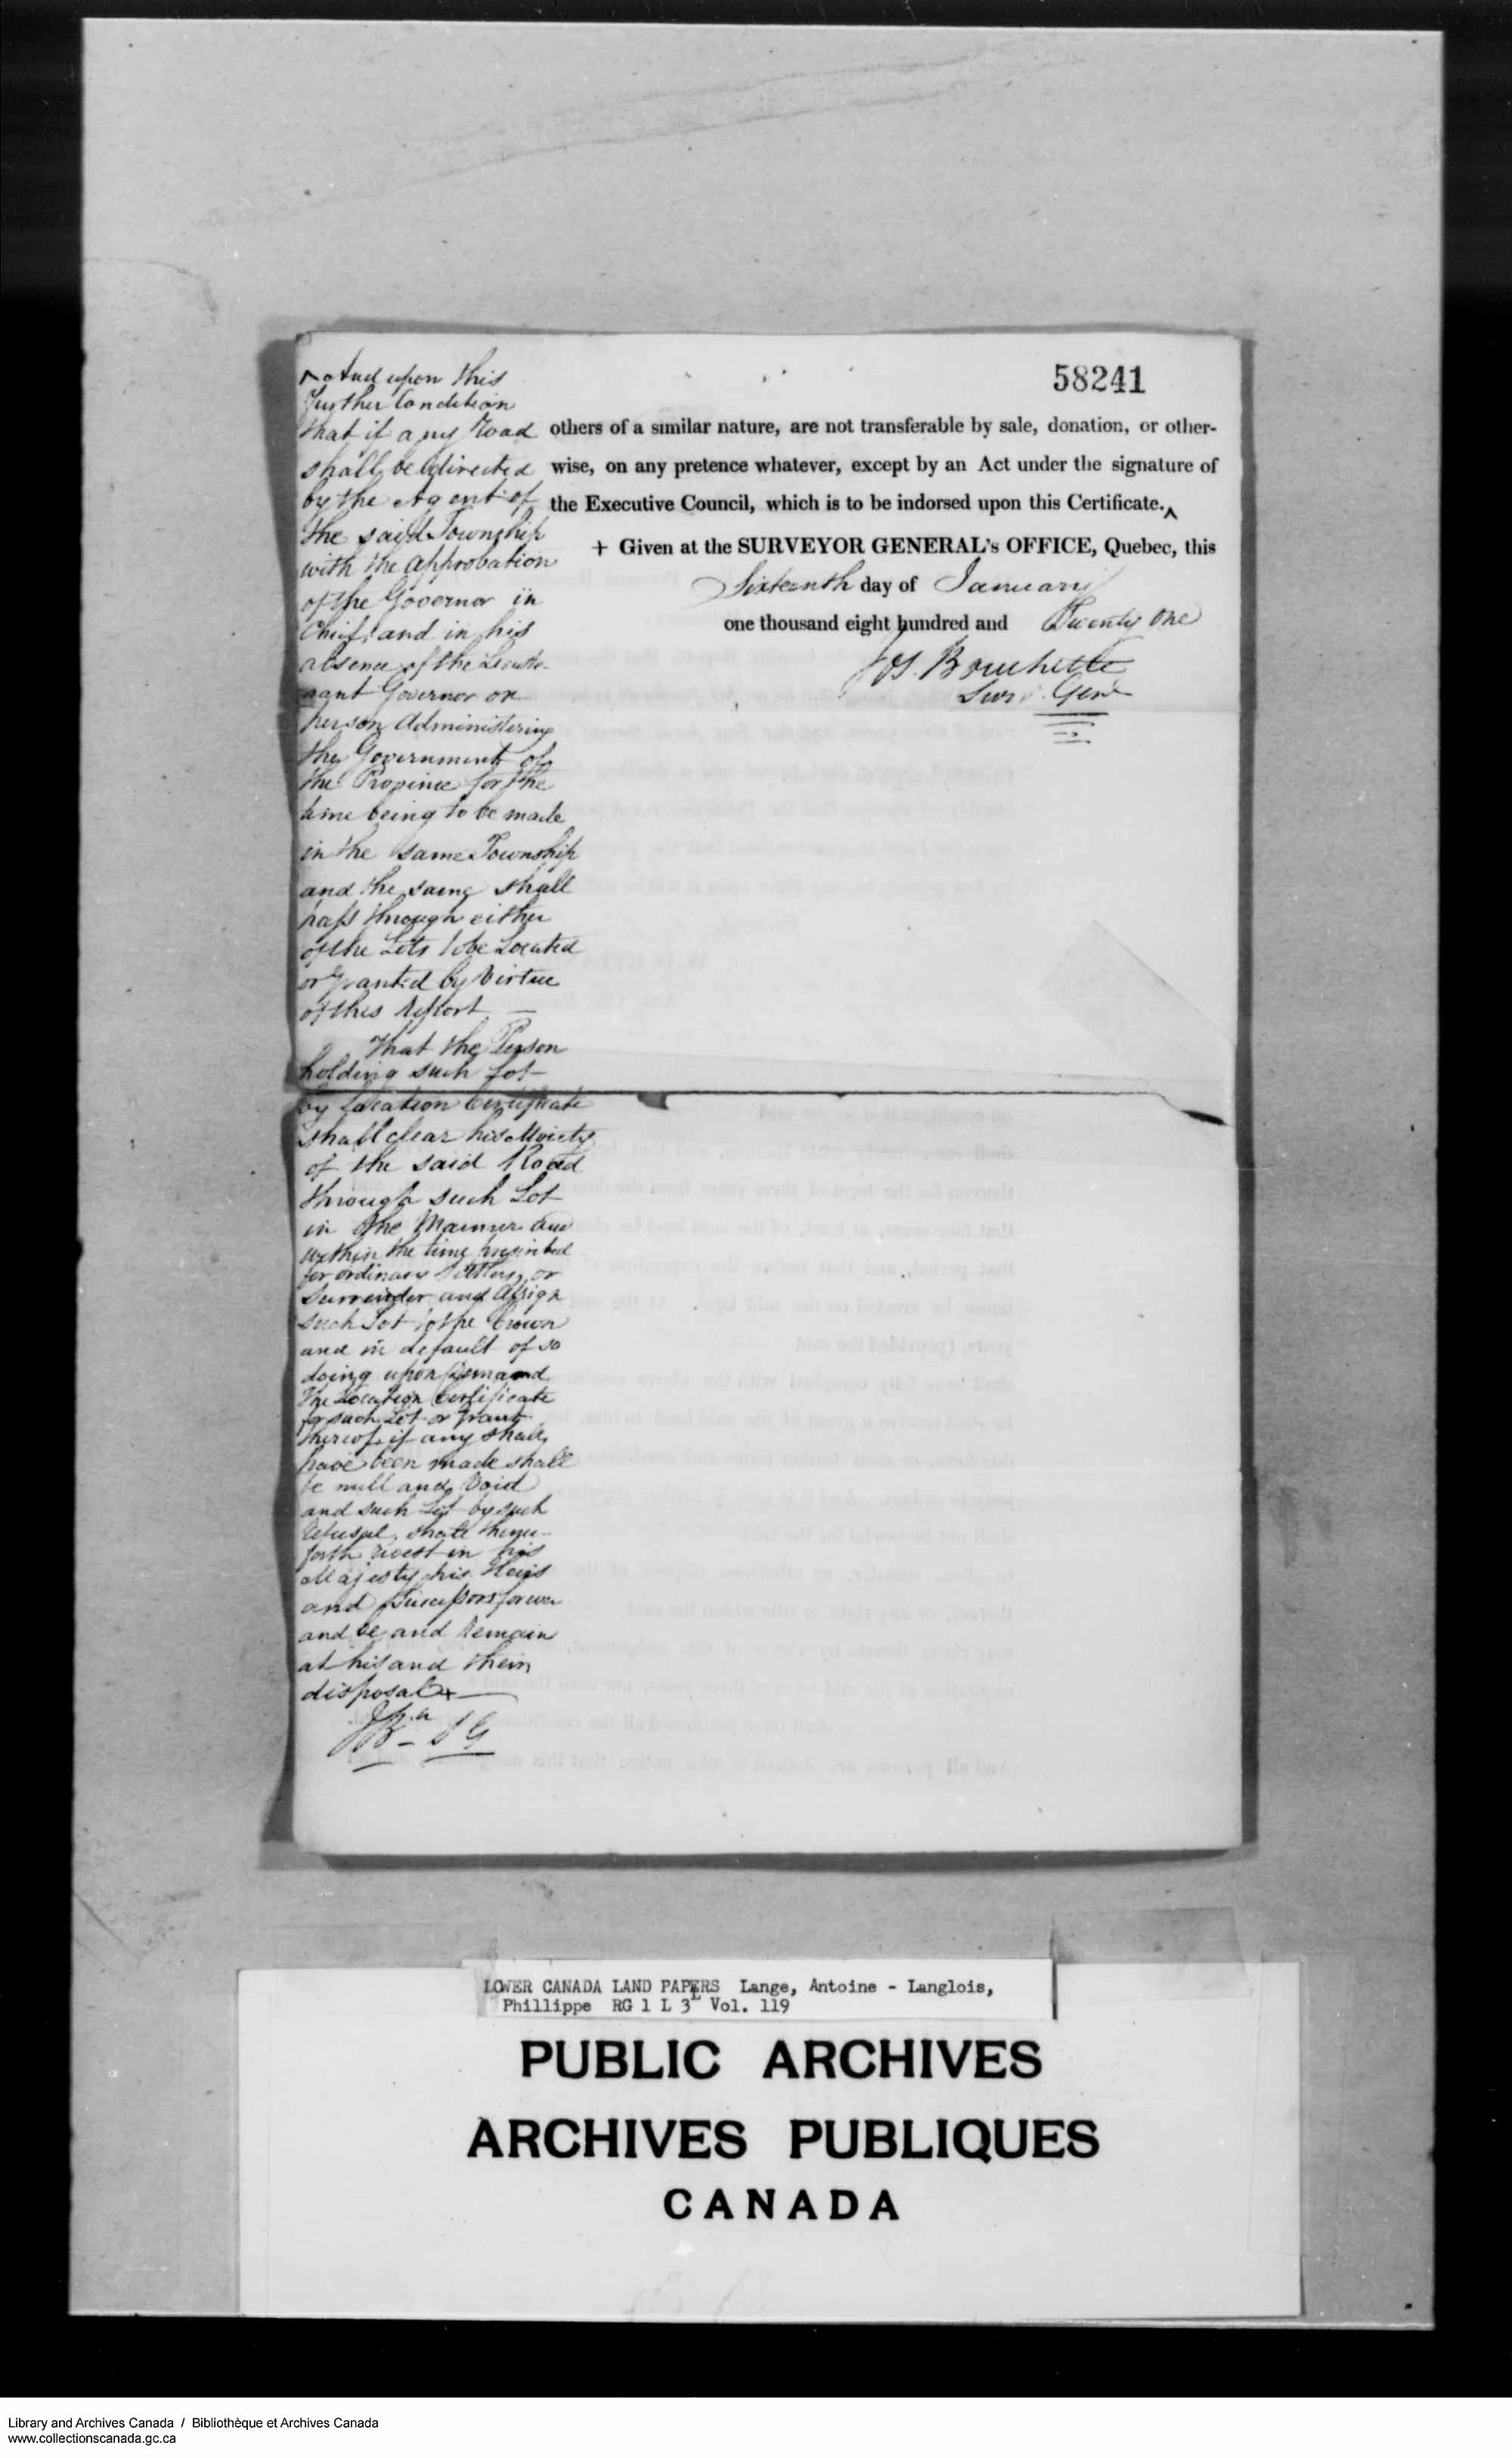 58241
others of a similar nature, are not transferable by sale, donation, or other-
wise, on any pretence whatever, except by an Act under the signature of
the Executive Council, which is to be indorsed upon this Certificate.^
+ Given at the SURVEYOR GENERAL's OFFICE, Quebec, this
Sixteenth day of January
one thousand eight hundred and Twenty One
Jos. Bouchette
Surv. Genl
^ And upon this
further Condition
that if any Road
shall be directed
by the Agent of
the said Township
with the approbation
of the Governor in
Chief and in his
absence of the Lieute-
nant Governor or
person Administering
the Government of
the Province for the
time being to be made
in the same Township
and the same shall
pass through either
of the Lots to be Located
or Granted by Virtue
of this Report —
That the Person
holding such Lot
by Location Certificate
shall clear his Moiety
of the said Road
through such Lot
in the Manner and
within the time prescribed
for ordinary Settlers, or
Surrender and Assign
such Lot to the Crown
and in default of so
doing upon Demand
the Location Certificate
for such Lot or Grant
thereof if any shall
have been made shall
be null and Void
and such Lot by such
refusal shall thence-
forth revest in his
Majesty his Heirs
and Successors forever
and be and Remain
at his and their
disposal +
JB - S G
LOWER CANADA LAND PAPERS Lange, Antoine - Langlois,
Phillippe RG 1 L 3L Vol. 119
PUBLIC ARCHIVES
ARCHIVES PUBLIQUES
CANADA
Library and Archives Canada / Bibliothèque et Archives Canada
www.collectionscanada.gc.ca